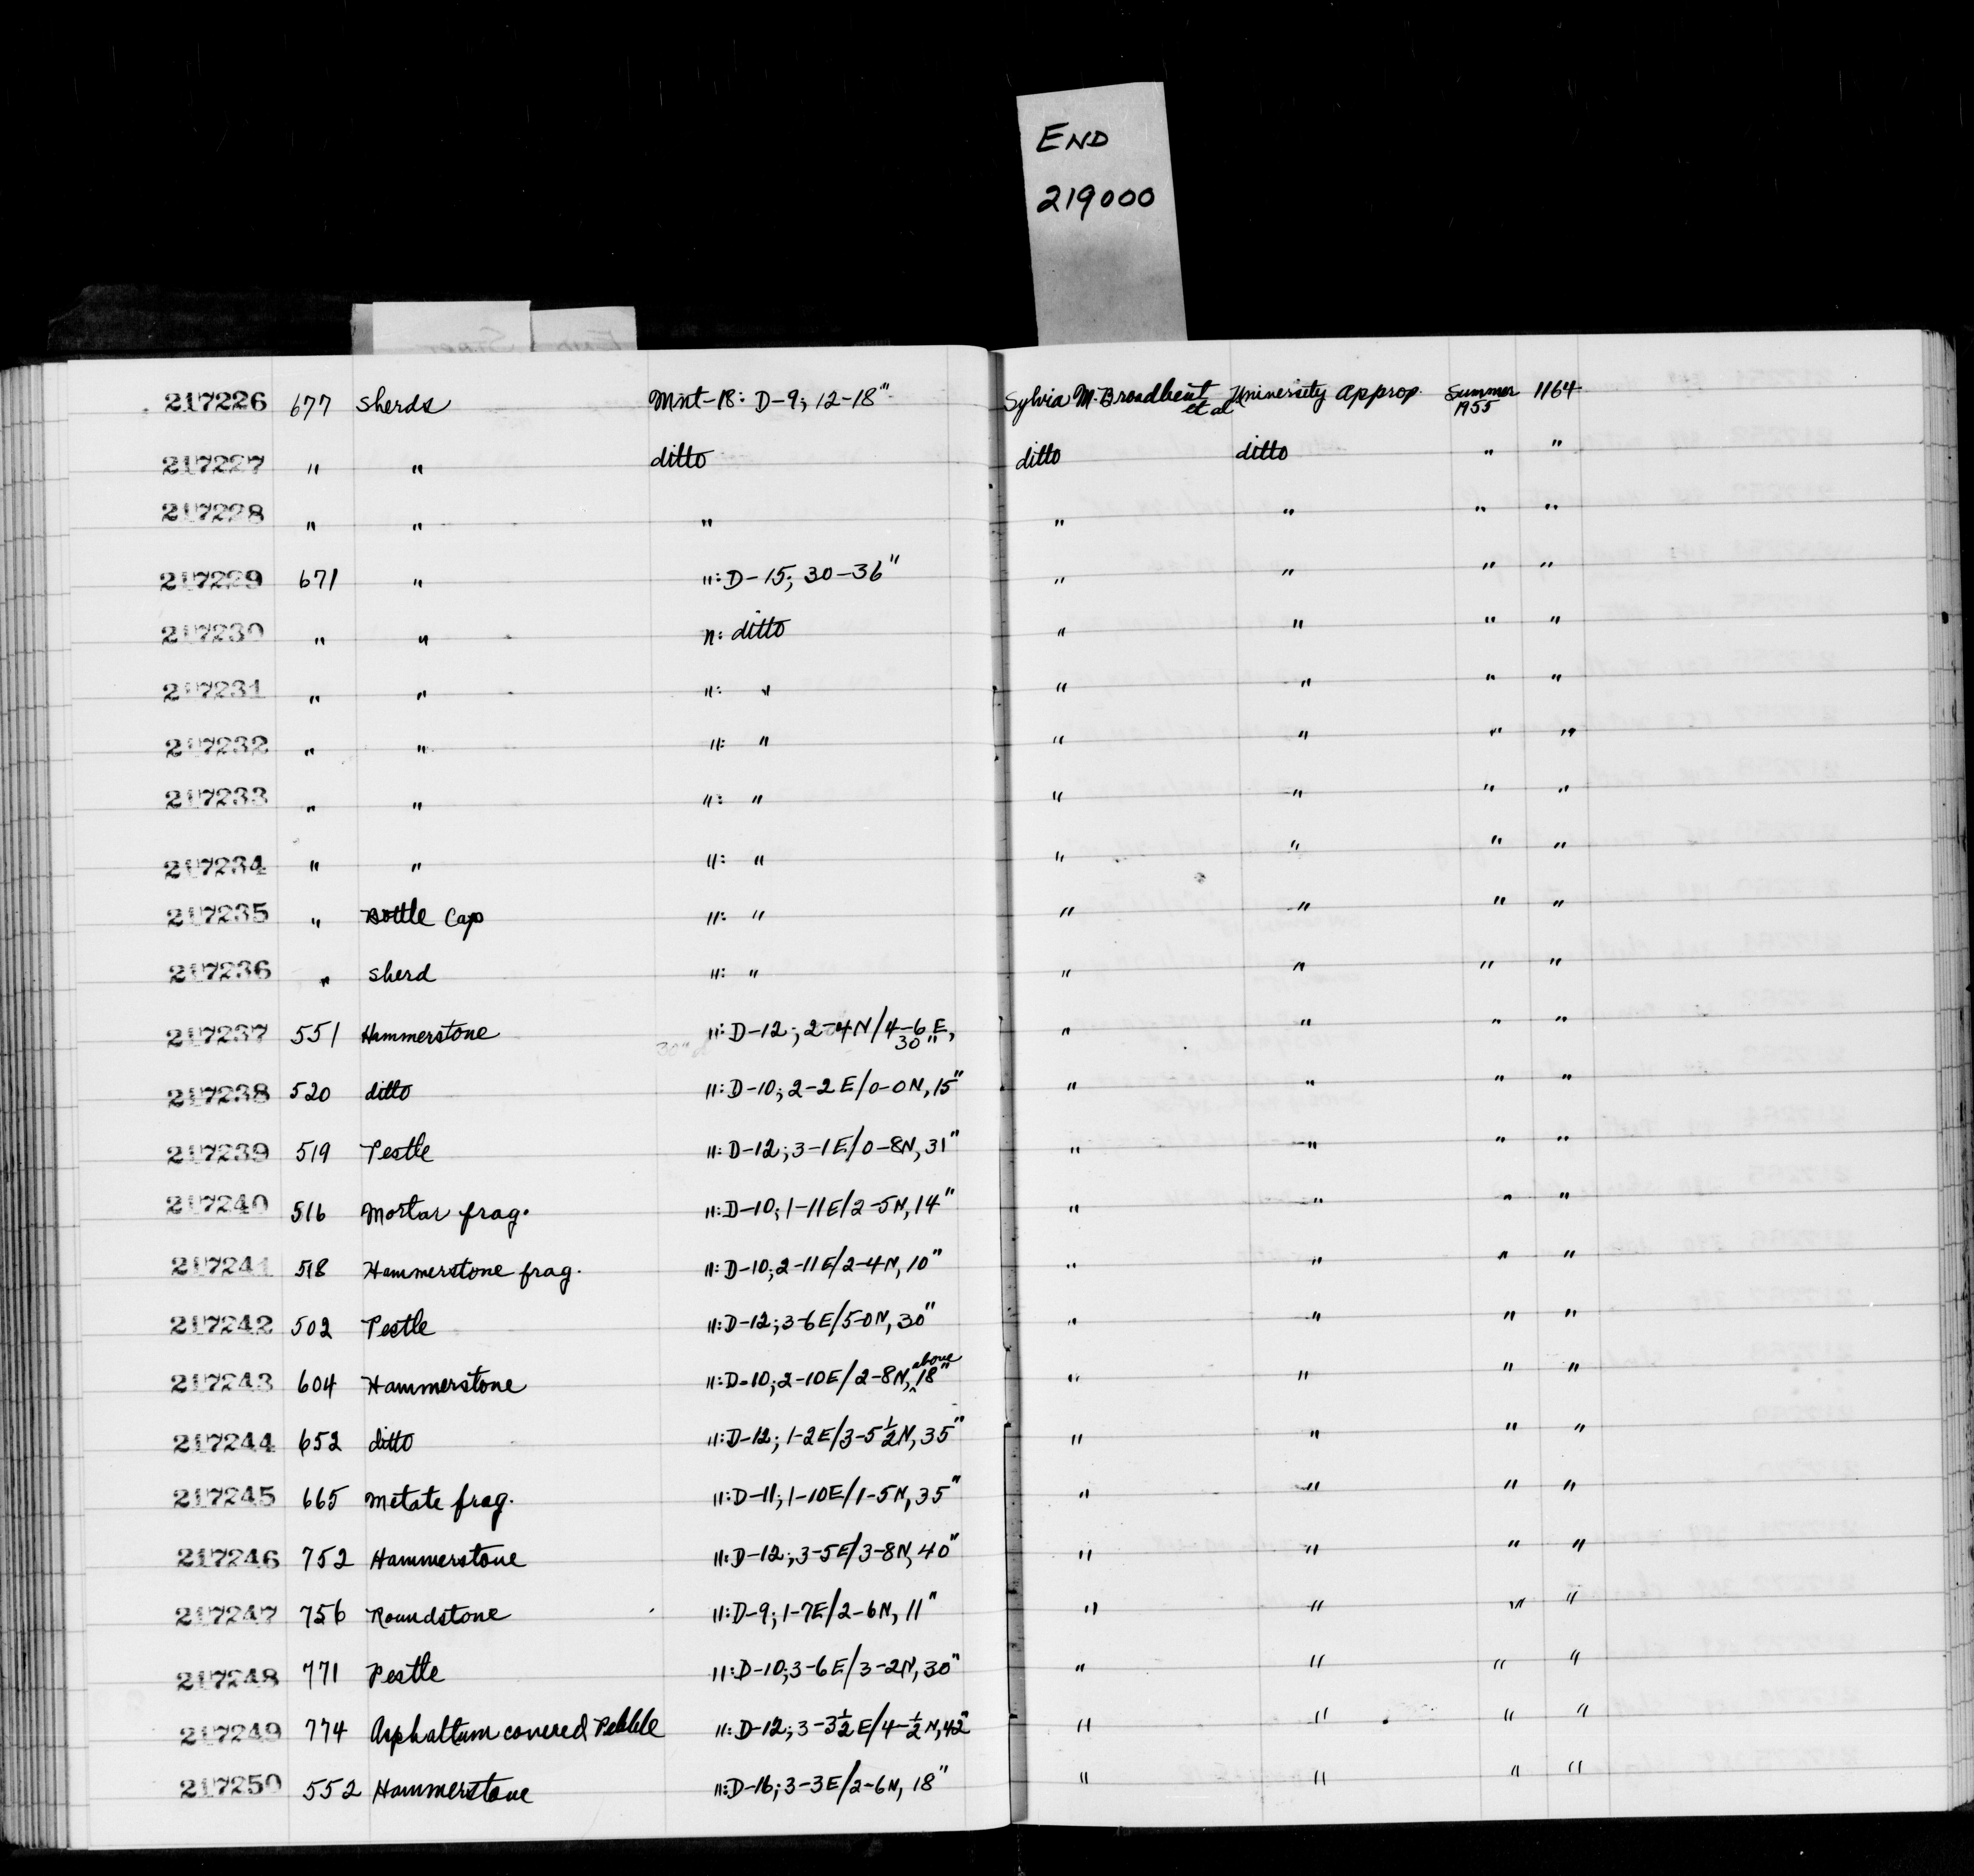 END
219000
217226 677 Sherds Mnt-18: D-9; 12-18" Sylvia M. Broadbent et al University Approp. Summer 1955 1164
217227 " " ditto ditto ditto " "
217228 " " " " " " "
217229 671 " ": D-15; 30-36" " " " "
217230 " " ": ditto " " " "
217231 " " ": " " " " "
217232 " " ": " " " " "
217233 " " ": " " " " "
217234 " " ": " " " " "
217235 " Bottle Cap ": " " " " "
217236 " Sherd ": " " " " "
217237 551 Hammerstone ": D-12; 2-4N/4-6E, 30" " " " "
217238 520 ditto ": D-10; 2-2E/0-0N, 15" " " " "
217239 519 Pestle ": D-12; 3-1E/0-8N, 31" " " " "
217240 516 Mortar frag. ": D-10; 1-11E/2-5N, 14" " " " "
217241 518 Hammerstone frag. ": D-10; 2-11E/2-4N, 10" " " " "
217242 502 Pestle ": D-12; 3-6E/5-0N, 30" " " " "
217243 604 Hammerstone ": D-10; 2-10E/2-8N, above 18" " " " "
217244 652 ditto ": D-12; 1-2E/3-5½N, 35" " " " "
217245 665 Metate frag. ": D-11; 1-10E/1-5N, 35" " " " "
217246 752 Hammerstone ": D-12; 3-5E/3-8N, 40" " " " "
217247 756 Roundstone ": D-9; 1-7E/2-6N, 11" " " " "
217248 771 Pestle ": D-10; 3-6E/3-2N, 30" " " " "
217249 774 Asphaltum covered Pebble ": D-12; 3-3½E/4-½N, 42" " " " "
217250 552 Hammerstone ": D-16; 3-3E/2-6N, 18" " " " "